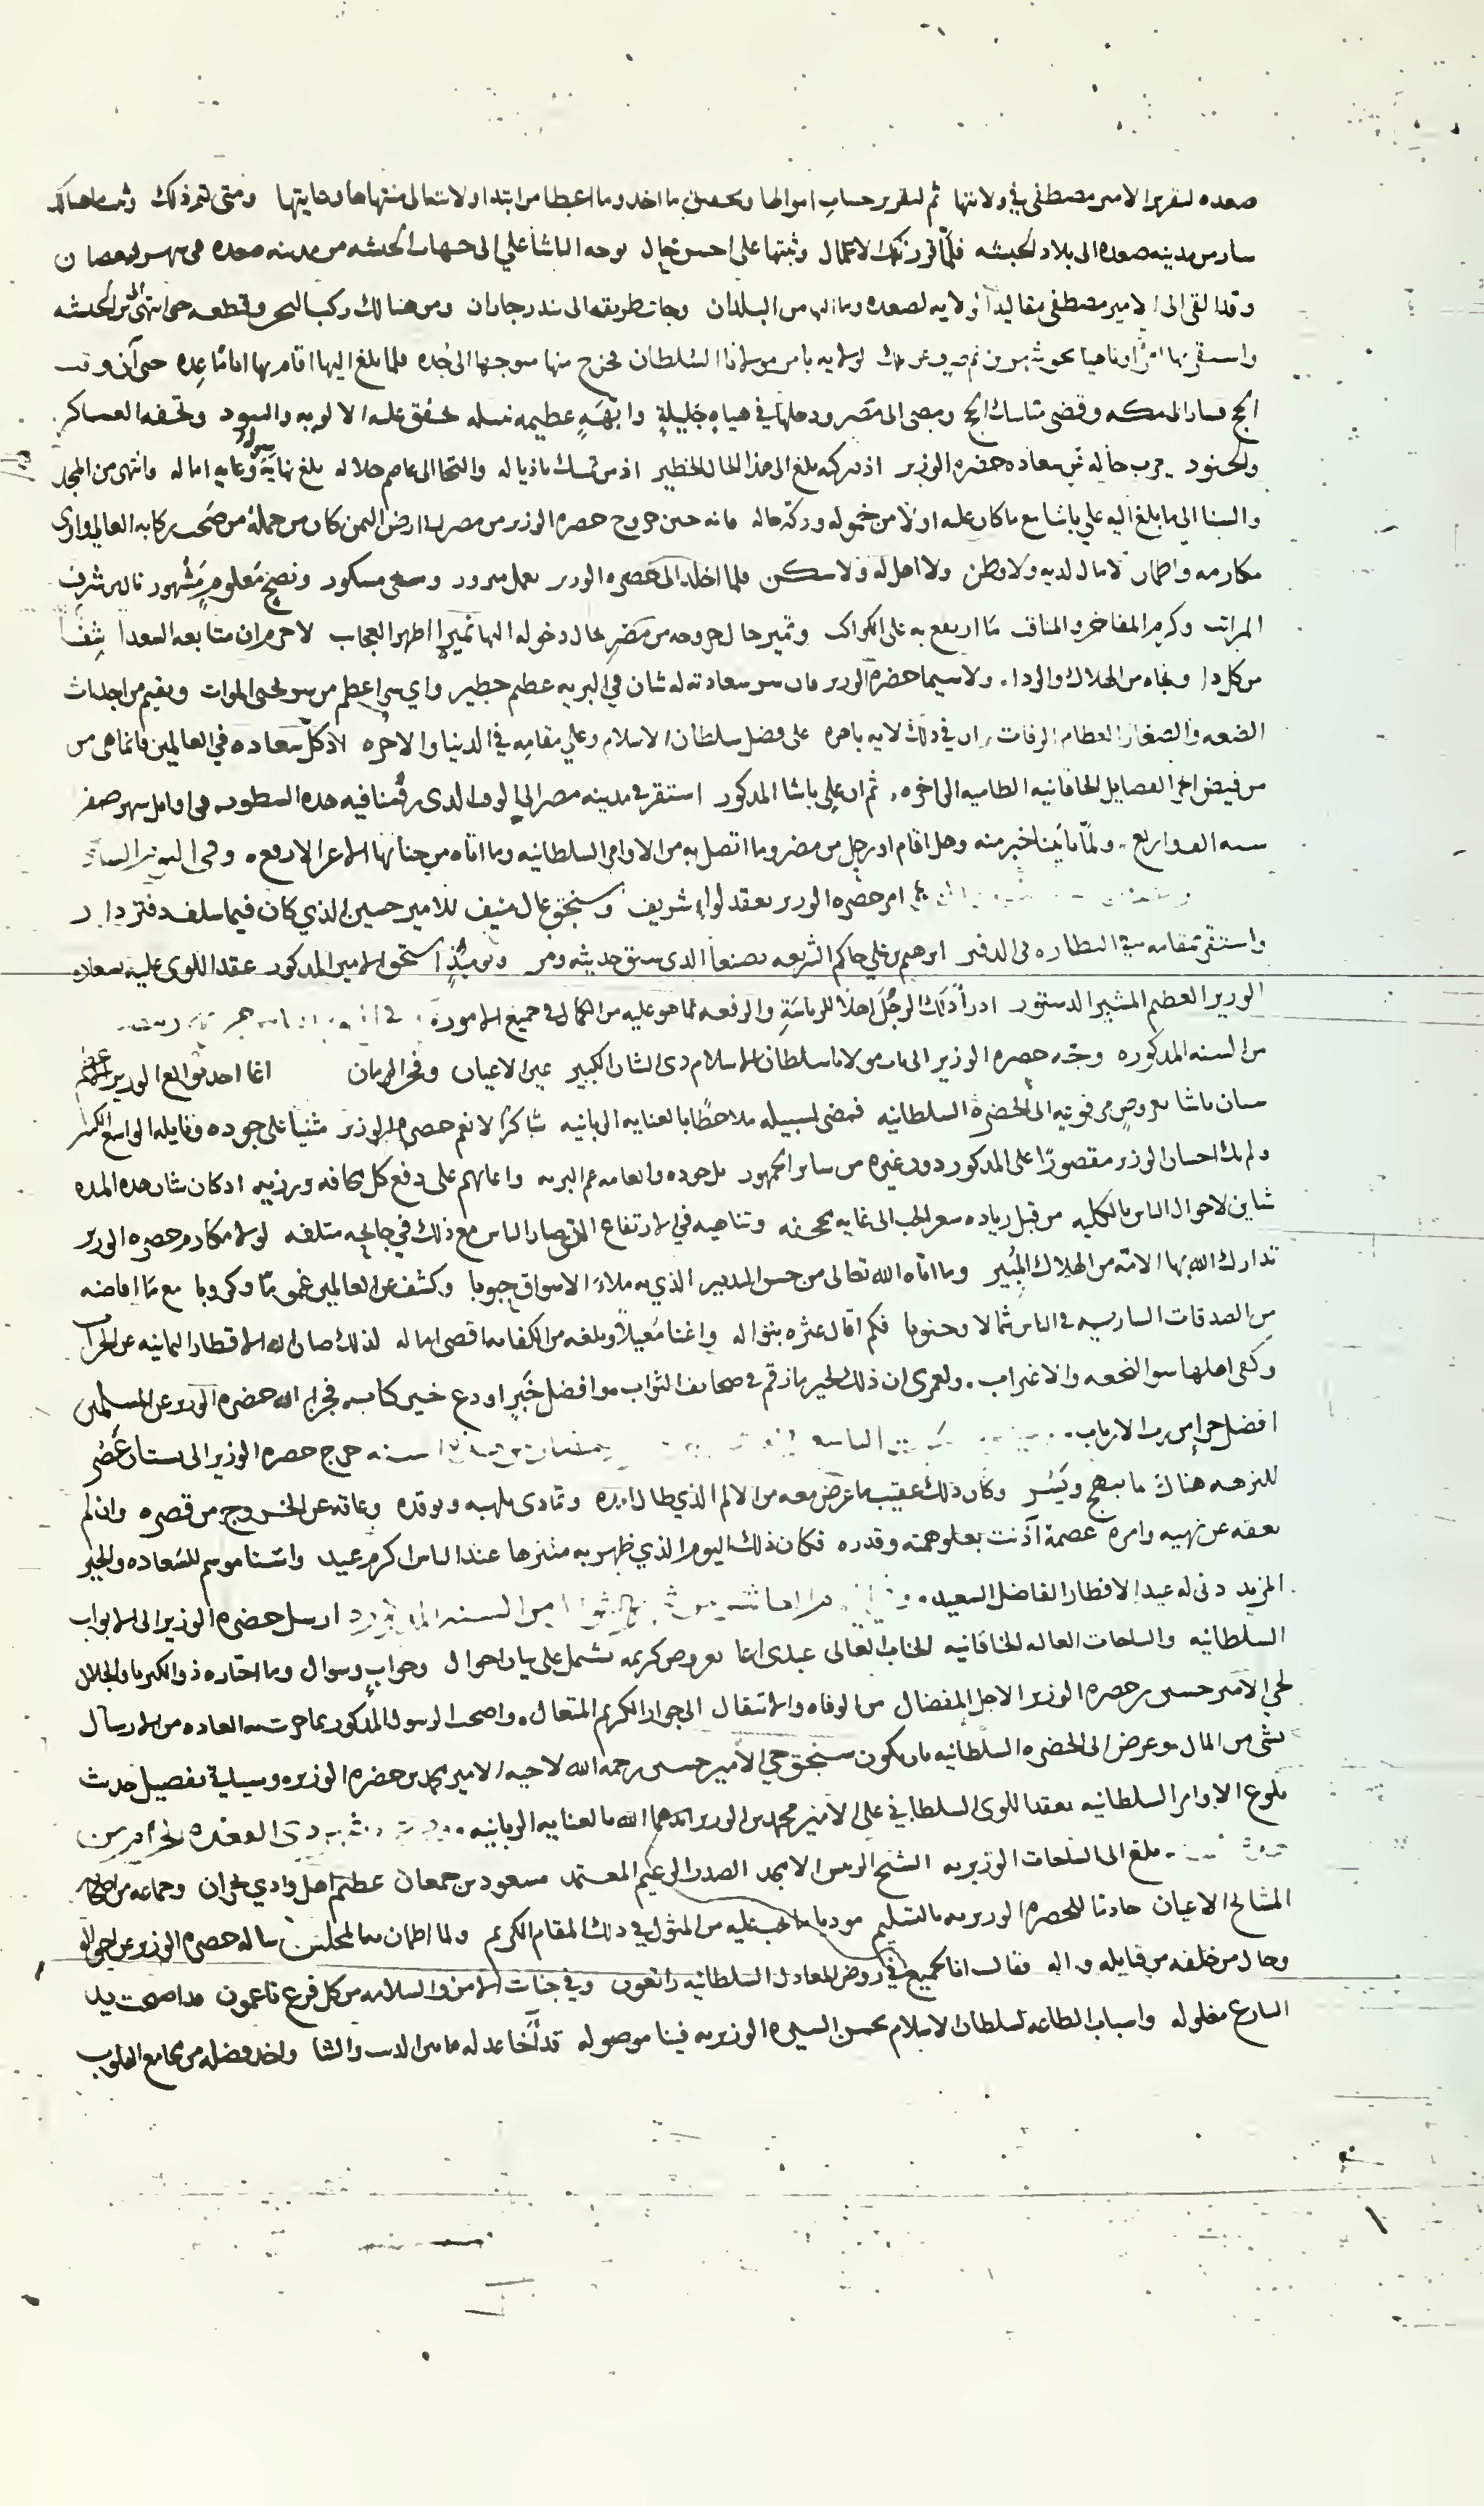 صعده لتقرير الامير مصطفى في ولايتها ثم لتقرير حساب اموالها وتحصيل ما اخذ وما اعطا من ابتدا ولايته الى منتهاها وغايتها ومتى تم ذلك
سار من مدينه صعده الى بلاد الحبشه فلما قرر تلك الاعمال وثبتها على احسن حال توجه الباشا علي الى جهات الحبشه من مدينه صعده في شهر رمضان
وقد القى الى الامير مصطفى مقاليد الولايه لصعده وما اليها من البلدان وجات طريقه الى بندر جازان ومن هنالك ركب البحر وقطعه حتى انتهى الى بر الحبشه
واستقر بها امرا وناهيا نحو شهرين ثم صرف عن تلك الولايه بامر مولانا السلطان فخرج منها متوجها الى جده فلما بلغ اليها اقام بها اياما عده حتى آن وقت
الحج فسار الى مكه وقضى مناسك الحج ومضى الى مصر ودخلها في هياه جليلة وابهة عظيمه نبيله تخفق عليه الالويه والبنود وتحفه العساكر
والجنود حاله عن سعاده حضره الوزير اذ بركته بلغ الى هذا الحال الخطير اذ من تمسك باذياله والتجا الى عاصم جلاله بلغ نهاية سوله وغايه اماله وانتهى من المجد
والسنا الى ما بلغ اليه علي باشا مع ما كان عليه اولا من خموله وركة حاله فانه حين خروج حضره الوزير من مصر الى ارض اليمن كان من جملة من صحب ركابه العالي
مكارمه لا مال لديه ولا وطن ولا اهل له ولا سكن فلما اخلد الى حضره الوزير بعمل مبرور وسعي مشكور ونصح معلوم مشهور نال من شرف
المراتب وكريم المفاخر والمناقب ما ارتفع به على الكواكب وتميز حال خروجه من مصر بحال دخوله اليها تميزا اظهر العجاب لا جرم ان متابعه السعدا شفآ
من كل دا ونجاه من الهلاك والردا . ولا سيما حضرة الوزير فان سر سعادته له شان في البريه عظيم خطير واي سر اعظم من سر يحيي الموات ويقيم من اجداث
الضعه والصغار العظام الرفات ان في ذلك لايه باهره على فضل سلطان الاسلام وعلي مقامه في الدنيا والاخره اذ كل سعاده في العالمين فانما هي من
من فيض الفضايل الخاقانيه الطاميه الزاخره . ثم ان علي باشا المذكور استقر في مدينه مصر الى الوقت الذي رقمنا فيه هذه السطور وهي اوايل شهر صفر
سنه الف واربع . ولما ياتينا خبر منه وهل اقام او رحل من مصر وما اتصل به من الاوامر السلطانيه وما اتاه من جنابها الاعز الارفع . وفي اليوم
امر حضره الوزير بعقد لواء شريف وسنجق عال منيف للامير حسين الذي كان فيما سلف دفتردار
واستقر مقامه في النظاره في الدفتر ابرهيم بن علي حاكم الشريعه بصنعا الذي سبق حديثه ومر ويوميذ استحق الامير المذكور عقد اللوى عليه بسعاده
الوزير العظيم المشير الدستور اذ راى ذلك الرجل اهلا للرياسة والرفعه لما هو عليه من الكمال في جميع اموره .
من السنه المذكوره وجه حضره الوزير الى باب مولانا سلطان الاسلام ذي الشان الكبير عين الاعيان وفخر الزمان اغا احد توابع الوزير الاعظم
سنان باشا بعروض مرفوعه الى الحضرة السلطانيه فمضى لسبيله ملاحظا بالعنايه الربانيه شاكرا لانعم حضره الوزير مثنيا على جوده ونايله الواسع الكثير
ولم يك احسان الوزير مقصورا على المذكور دون غيره من ساير الجمهور بل جوده وانعامه عم البريه واعانهم على دفع كل مخافه ورزيه اذ كان شان هذه المده
شاين لاحوال الناس بالكليه من قبل زياده سعر الحب الى غايه مجحفه وتناهيه في الارتفاع الى ان صار الناس مع ذلك في جايحه متلفه لولا مكارم حضره الوزير
تدارك الله بها الامة من الهلاك المبير وما اتاه الله تعالى من حسن التدبير الذي به ملاء الاسواق حبوبا وكشف عن العالمين غموما وكروبا مع ما افاضه
من الصدقات الساريه في الناس شمالا وجنوبا فكم اقال عثره بنواله واغنا معيلا وبلغه من الكفايه اقصى اماله لذلك صان الله الاقطار اليمانيه عن الخراب
وكفى اهلها سوا النجعه والاغتراب . ولعمري ان ذلك لخير ما رقم في صحايف الثواب وافضل خبر اودع خير كتاب فجزا الله حضره الوزير عن المسلمين
افضل جزا من رب الارباب . خرج حضره الوزير الى بستان
للنزهه هناك ما يبهج ويسر وكان ذلك عقيب ما عرض معه من الالم الذي طال امره وتمادى تلهبه وتوقده وعاقه عن الخروج من قصره وان لم
يعقه عن نهيه وامره عصمة آذنت بعلو همته وقدره فكان ذلك اليوم الذي ظهر به متنزها عند الناس اكرم عيد واسنا موسم للسعاده والخير
المزيد دنى له عيد الافطار الفاضل السعيد . من السنه المذكوره ارسل حضره الوزير الى الابواب
السلطانيه والساحات العاليه الخاقانيه الجناب العالي عبدي اغا بعروض كريمه تشتمل على بيان احوال وجواب وسوال وما اختاره ذو الكبريا والجلال
لحي الامير حسن بن حضره الوزير الاجل المفضال من الوفاه والانتقال الى جوار الكريم المتعال . واصحب الرسول المذكور بما جرت به العاده من الارسال
بشي من المال وعرض الى الحضره السلطانيه بان يكون سنجق حي الامير حسن رحمه الله لاخيه الامير محمد بن حضره الوزير وسياتي تفصيل حديث
بلوغ الاوامر السلطانيه بعقد اللوى السلطاني على الامير محمد بن الوزير ايدهما الله بالعنايه الربانيه . ذي القعده الحرام من
بلغ الى الساحات الوزيريه الشيخ الرييس الامجد الصدر الزعيم المعتمد مسعود بن جمعان عظيم اهل وادي نجران وجماعه من
المشايخ الاعيان الحضره الوزيريه بالتسليم موديا ما يجب عليه من المثول في ذلك المقام الكريم ولما اطمان به المجلس ساله حضره الوزير عن احواله
وحال من خلفه من قبايله واله فقال انا جميع في روض المعادل السلطانيه راتعون وفي جنات الامن والسلامه من كل فزع ناعمون قد اصبحت يد
مغلوله واسباب الطاعه لسلطان الاسلام بحسن السيره الوزيريه فينا موصوله قد اخا عدله ما بين الذيب والشا واخذ فضله من مجامع القلوب